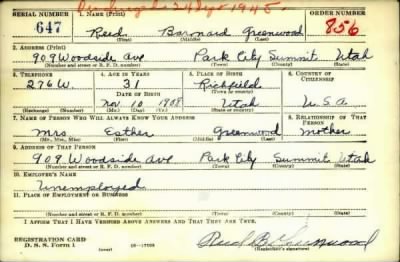 24 Sep 1945.
SERIAL NUMBER 1. NAME (Print) ORDER NUMBER
647 Reed Barnard Greenwood 856
(First) (Middle) (Last)
2. ADDRESS (Print)
909 Woodside Ave Park City Summit Utah
(Number and street or R. F. D. number) (Town) (County) (State)
3. TELEPHONE 4. AGE IN YEARS 5. PLACE OF BIRTH 6. COUNTRY OF CITIZENSHIP
276 W. 31 Richfield
DATE OF BIRTH (Town or county)
Nov 10 1908 Utah U.S.A.
(Exchange) (Number) (Mo.) (Day) (Yr.) (State or country)
7. NAME OF PERSON WHO WILL ALWAYS KNOW YOUR ADDRESS 8. RELATIONSHIP OF THAT PERSON
Mrs Esther Greenwood Mother
(Mr., Mrs., Miss) (First) (Middle) (Last)
9. ADDRESS OF THAT PERSON
909 Woodside Ave Park City Summit Utah
(Number and street or R. F. D. number) (Town) (County) (State)
10. EMPLOYER'S NAME
Unemployed
11. PLACE OF EMPLOYMENT OR BUSINESS
(Number and street or R. F. D. number) (Town) (County) (State)
I AFFIRM THAT I HAVE VERIFIED ABOVE ANSWERS AND THAT THEY ARE TRUE.
REGISTRATION CARD
D. S. S. FORM 1 Reed B Greenwood
(Registrant's signature)